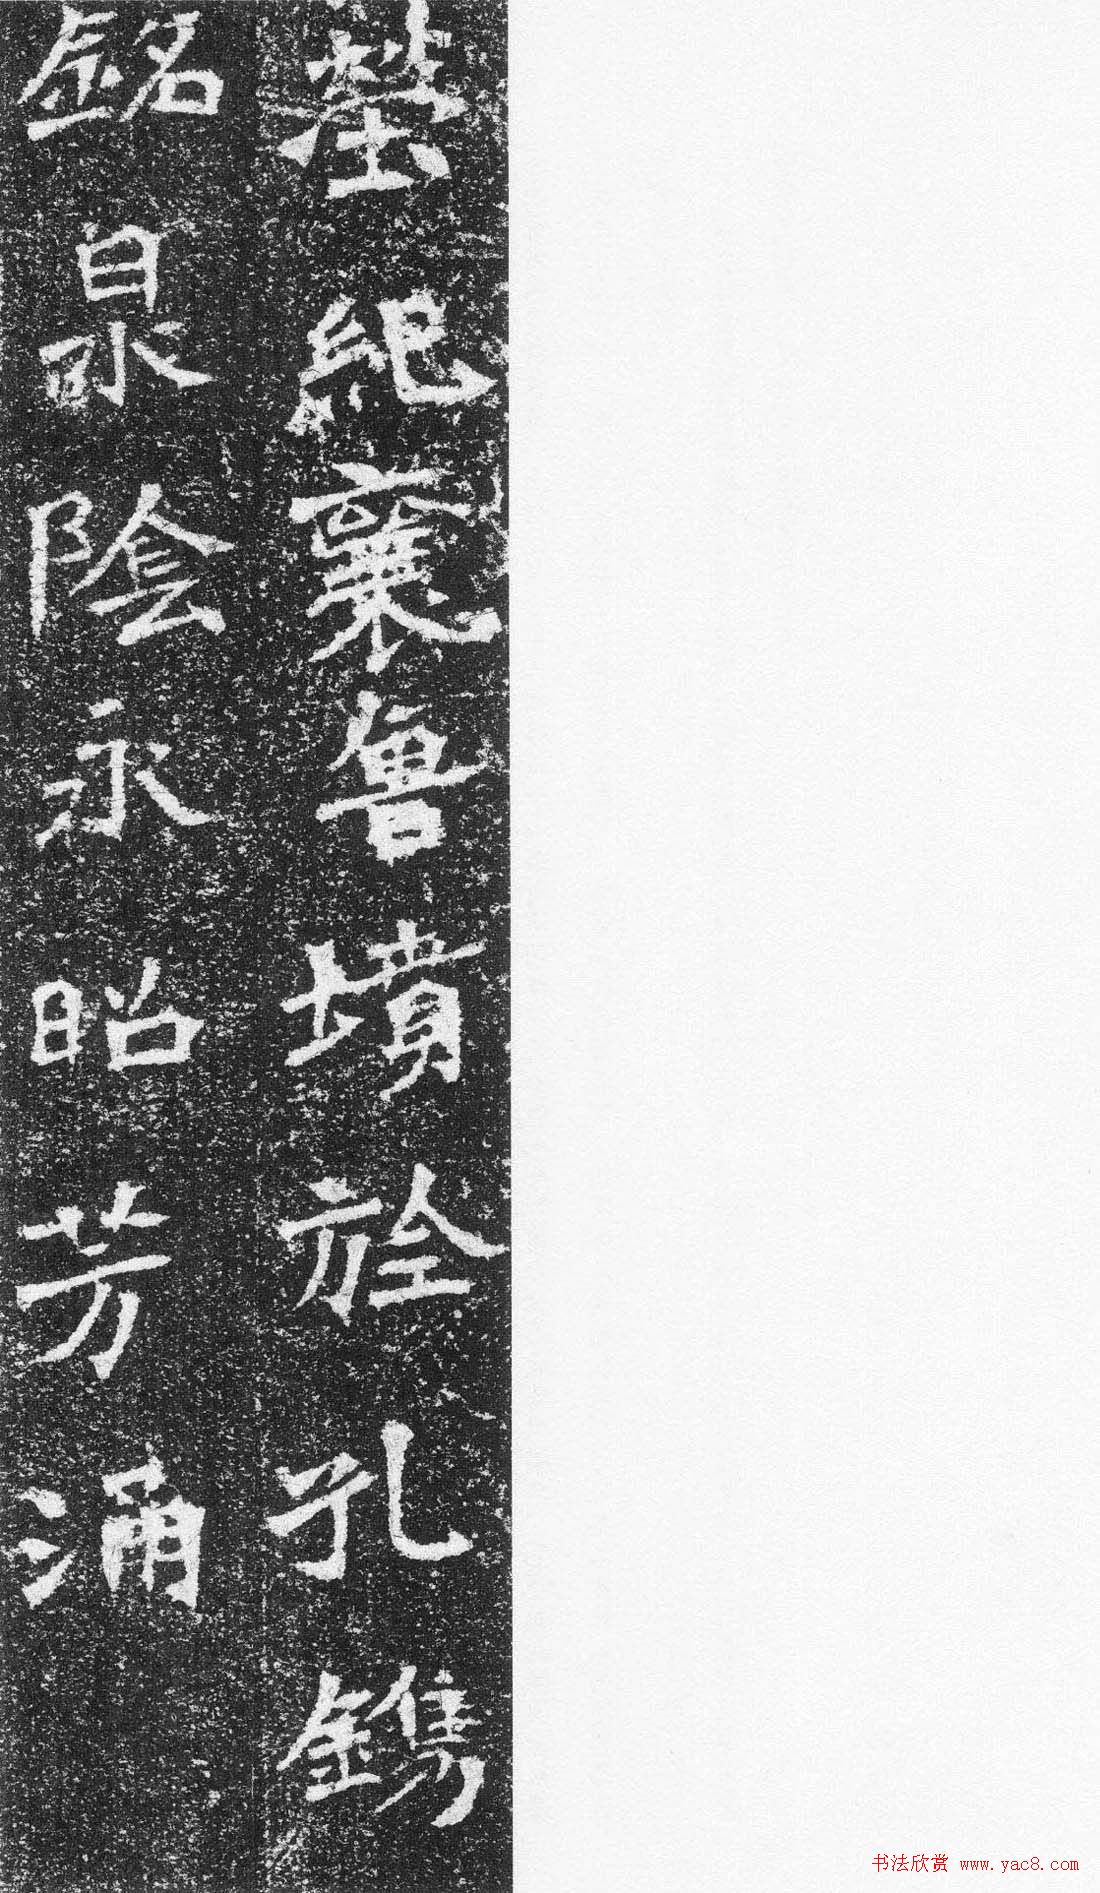 紀襄魯墳旌孔鐫
銘泉陰永昭芳涌
书法欣赏 www.yac8.com